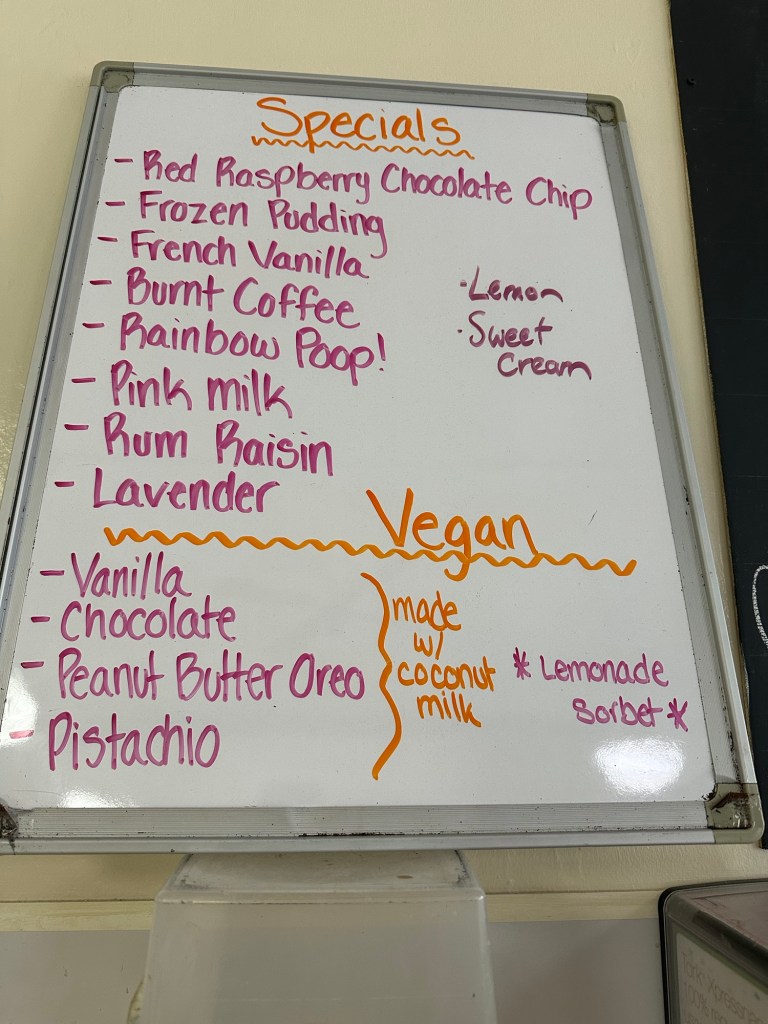 Specials
- Red Raspberry Chocolate Chip
- Frozen Pudding
- French Vanilla
- Burnt Coffee
- Rainbow Poop!
- Pink milk
- Rum Raisin
- Lavender
· Lemon
· Sweet
Cream
Vegan
- Vanilla
- Chocolate
- Peanut Butter Oreo
- Pistachio
made
w/
coconut
milk
* Lemonade
Sorbet *